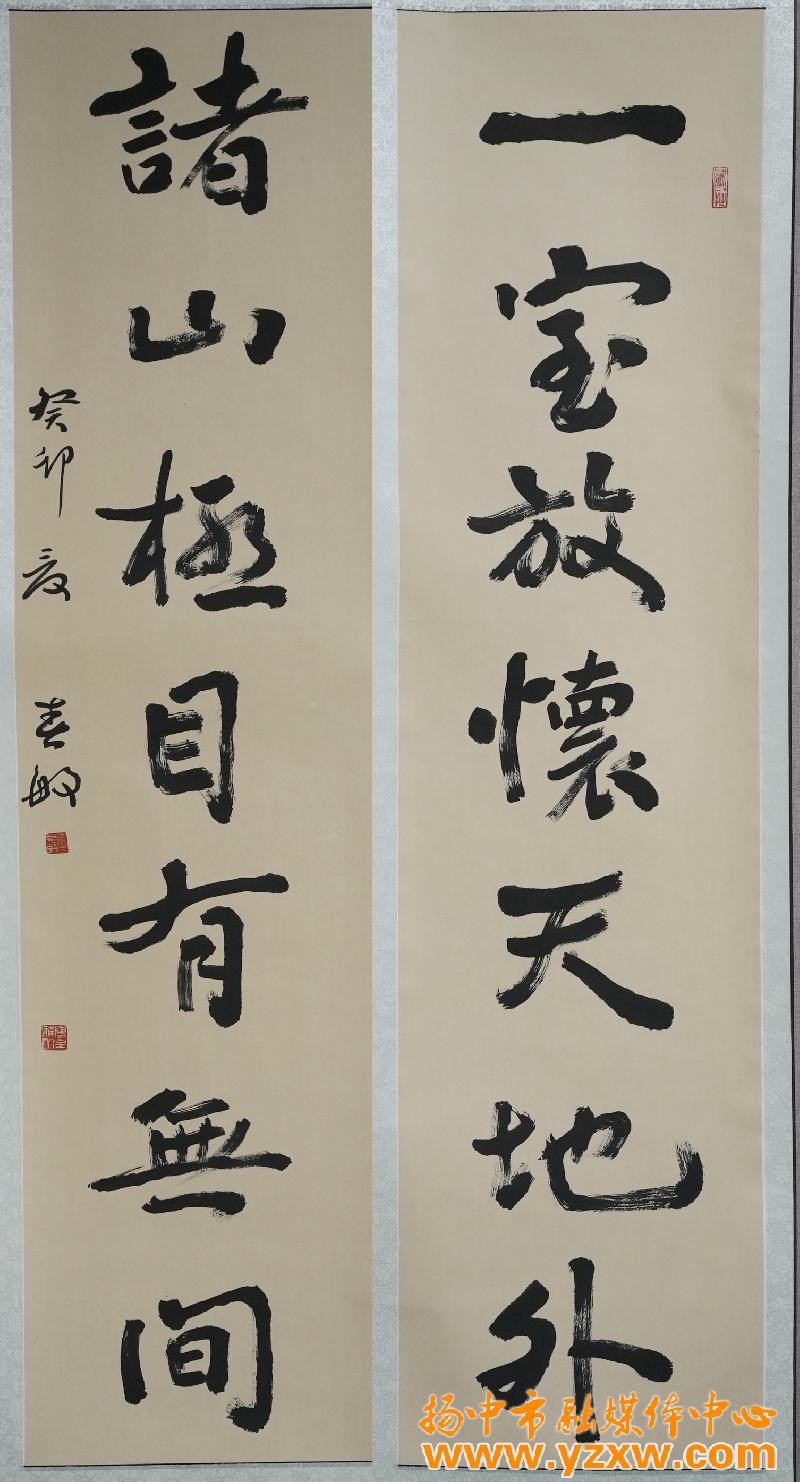 一室放懷天地外
諸山極目有無間
癸卯夏 春敏
扬中市融媒体中心
www.yzxw.com